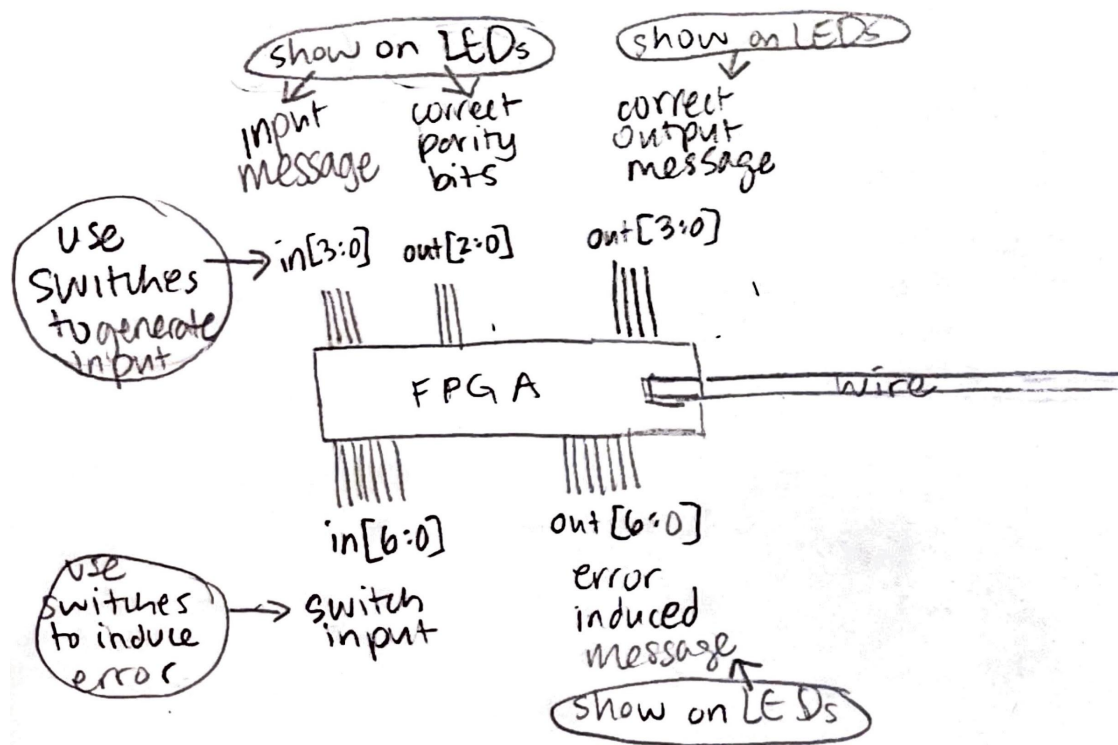 show on LEDs
show on LEDs
input
message
correct
parity
bits
correct
output
message
use
switches
to generate
input
in[3:0]
out[2:0]
out[3:0]
FPGA
wire
in[6:0]
out[6:0]
use
switches
to induce
error
switch
input
error
induced
message
show on LEDs